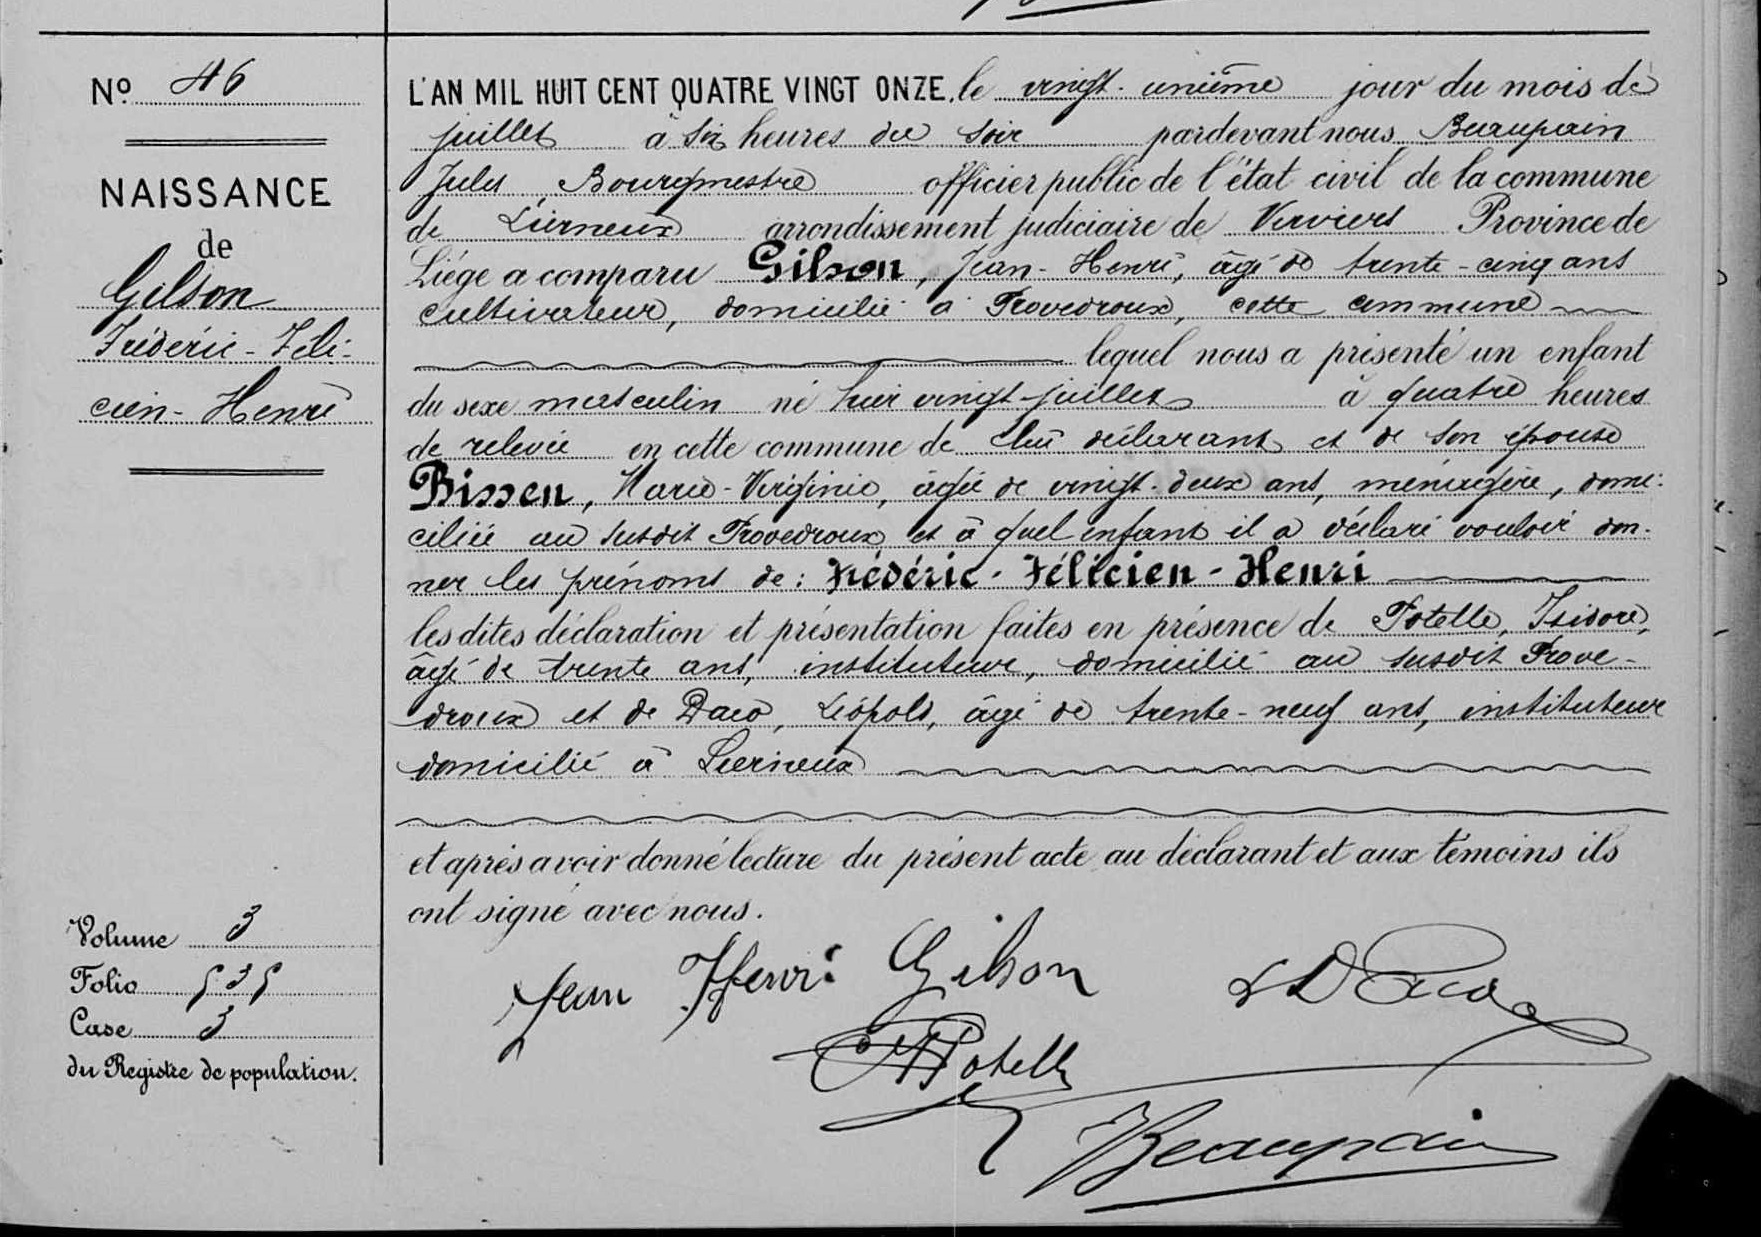 No 46
NAISSANCE
de
Gilson
Frédéric-Féli-
cien-Henri
L'AN MIL HUIT CENT QUATRE VINGT ONZE, le vingt-unième jour du mois de
juillet à six heures du soir pardevant nous Beaupain
Jules Bourgmestre officier public de l'état civil de la commune
de Lierneux arrondissement judiciaire de Verviers Province de
Liége a comparu Gilson, Jean-Henri, âgé de trente-cinq ans
cultivateur, domicilié à Provedroux, cette commune
lequel nous a présenté un enfant
du sexe masculin né hier vingt juillet à quatre heures
de relevée en cette commune de lui déclarant et de son épouse
Bissen, Marie-Virginie, âgée de vingt-deux ans, ménagère, domi-
ciliée au susdit Provedroux et à quel enfant il a déclaré vouloir don-
ner les prénoms de: Frédéric-Félicien-Henri
les dites déclaration et présentation faites en présence de Potelle, Isidore,
âgé de trente ans, instituteur, domicilié au susdit Prove-
droux et de Daco, Léopold, âgé de trente-neuf ans, instituteur
domicilié à Lierneux
et après avoir donné lecture du présent acte au déclarant et aux témoins ils
ont signé avec nous.
Volume 3
Folio 535
Case 3
du Registre de population.
Jean Henri Gilson
L Daco
Potelle
Beaupain